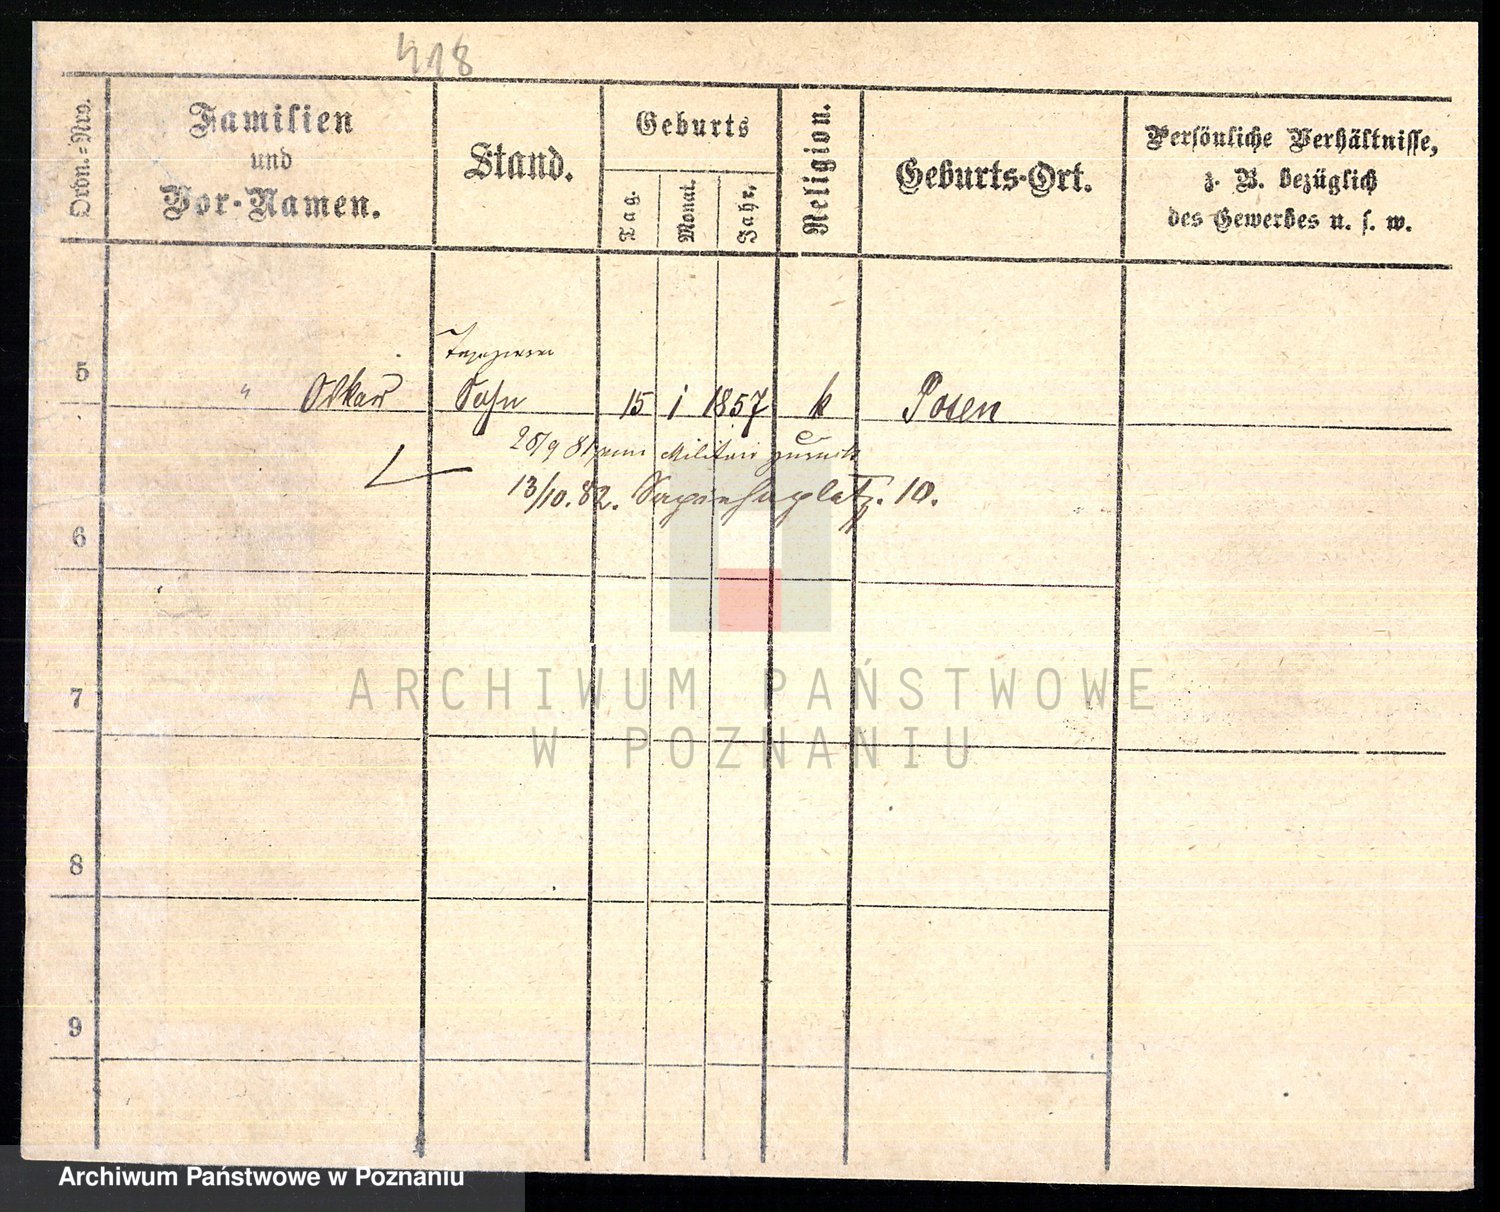 418
Ordn.-Nro.
Familien
und
Vor-Namen.
Stand.
Geburts
Tag.
Monat.
Jahr.
Religion.
Geburts-Ort.
Persönliche Verhältnisse,
z. B. bezüglich
des Gewerbes u. s. w.
Tapezierer
5 " Oskar Sohn 15 1 1857 k Posen
28/9 81 vom Militair zurück
13/10. 82. Sapiehaplatz. 10.
6
7
8
9
ARCHIWUM PAŃSTWOWE
W POZNANIU
Archiwum Państwowe w Poznaniu